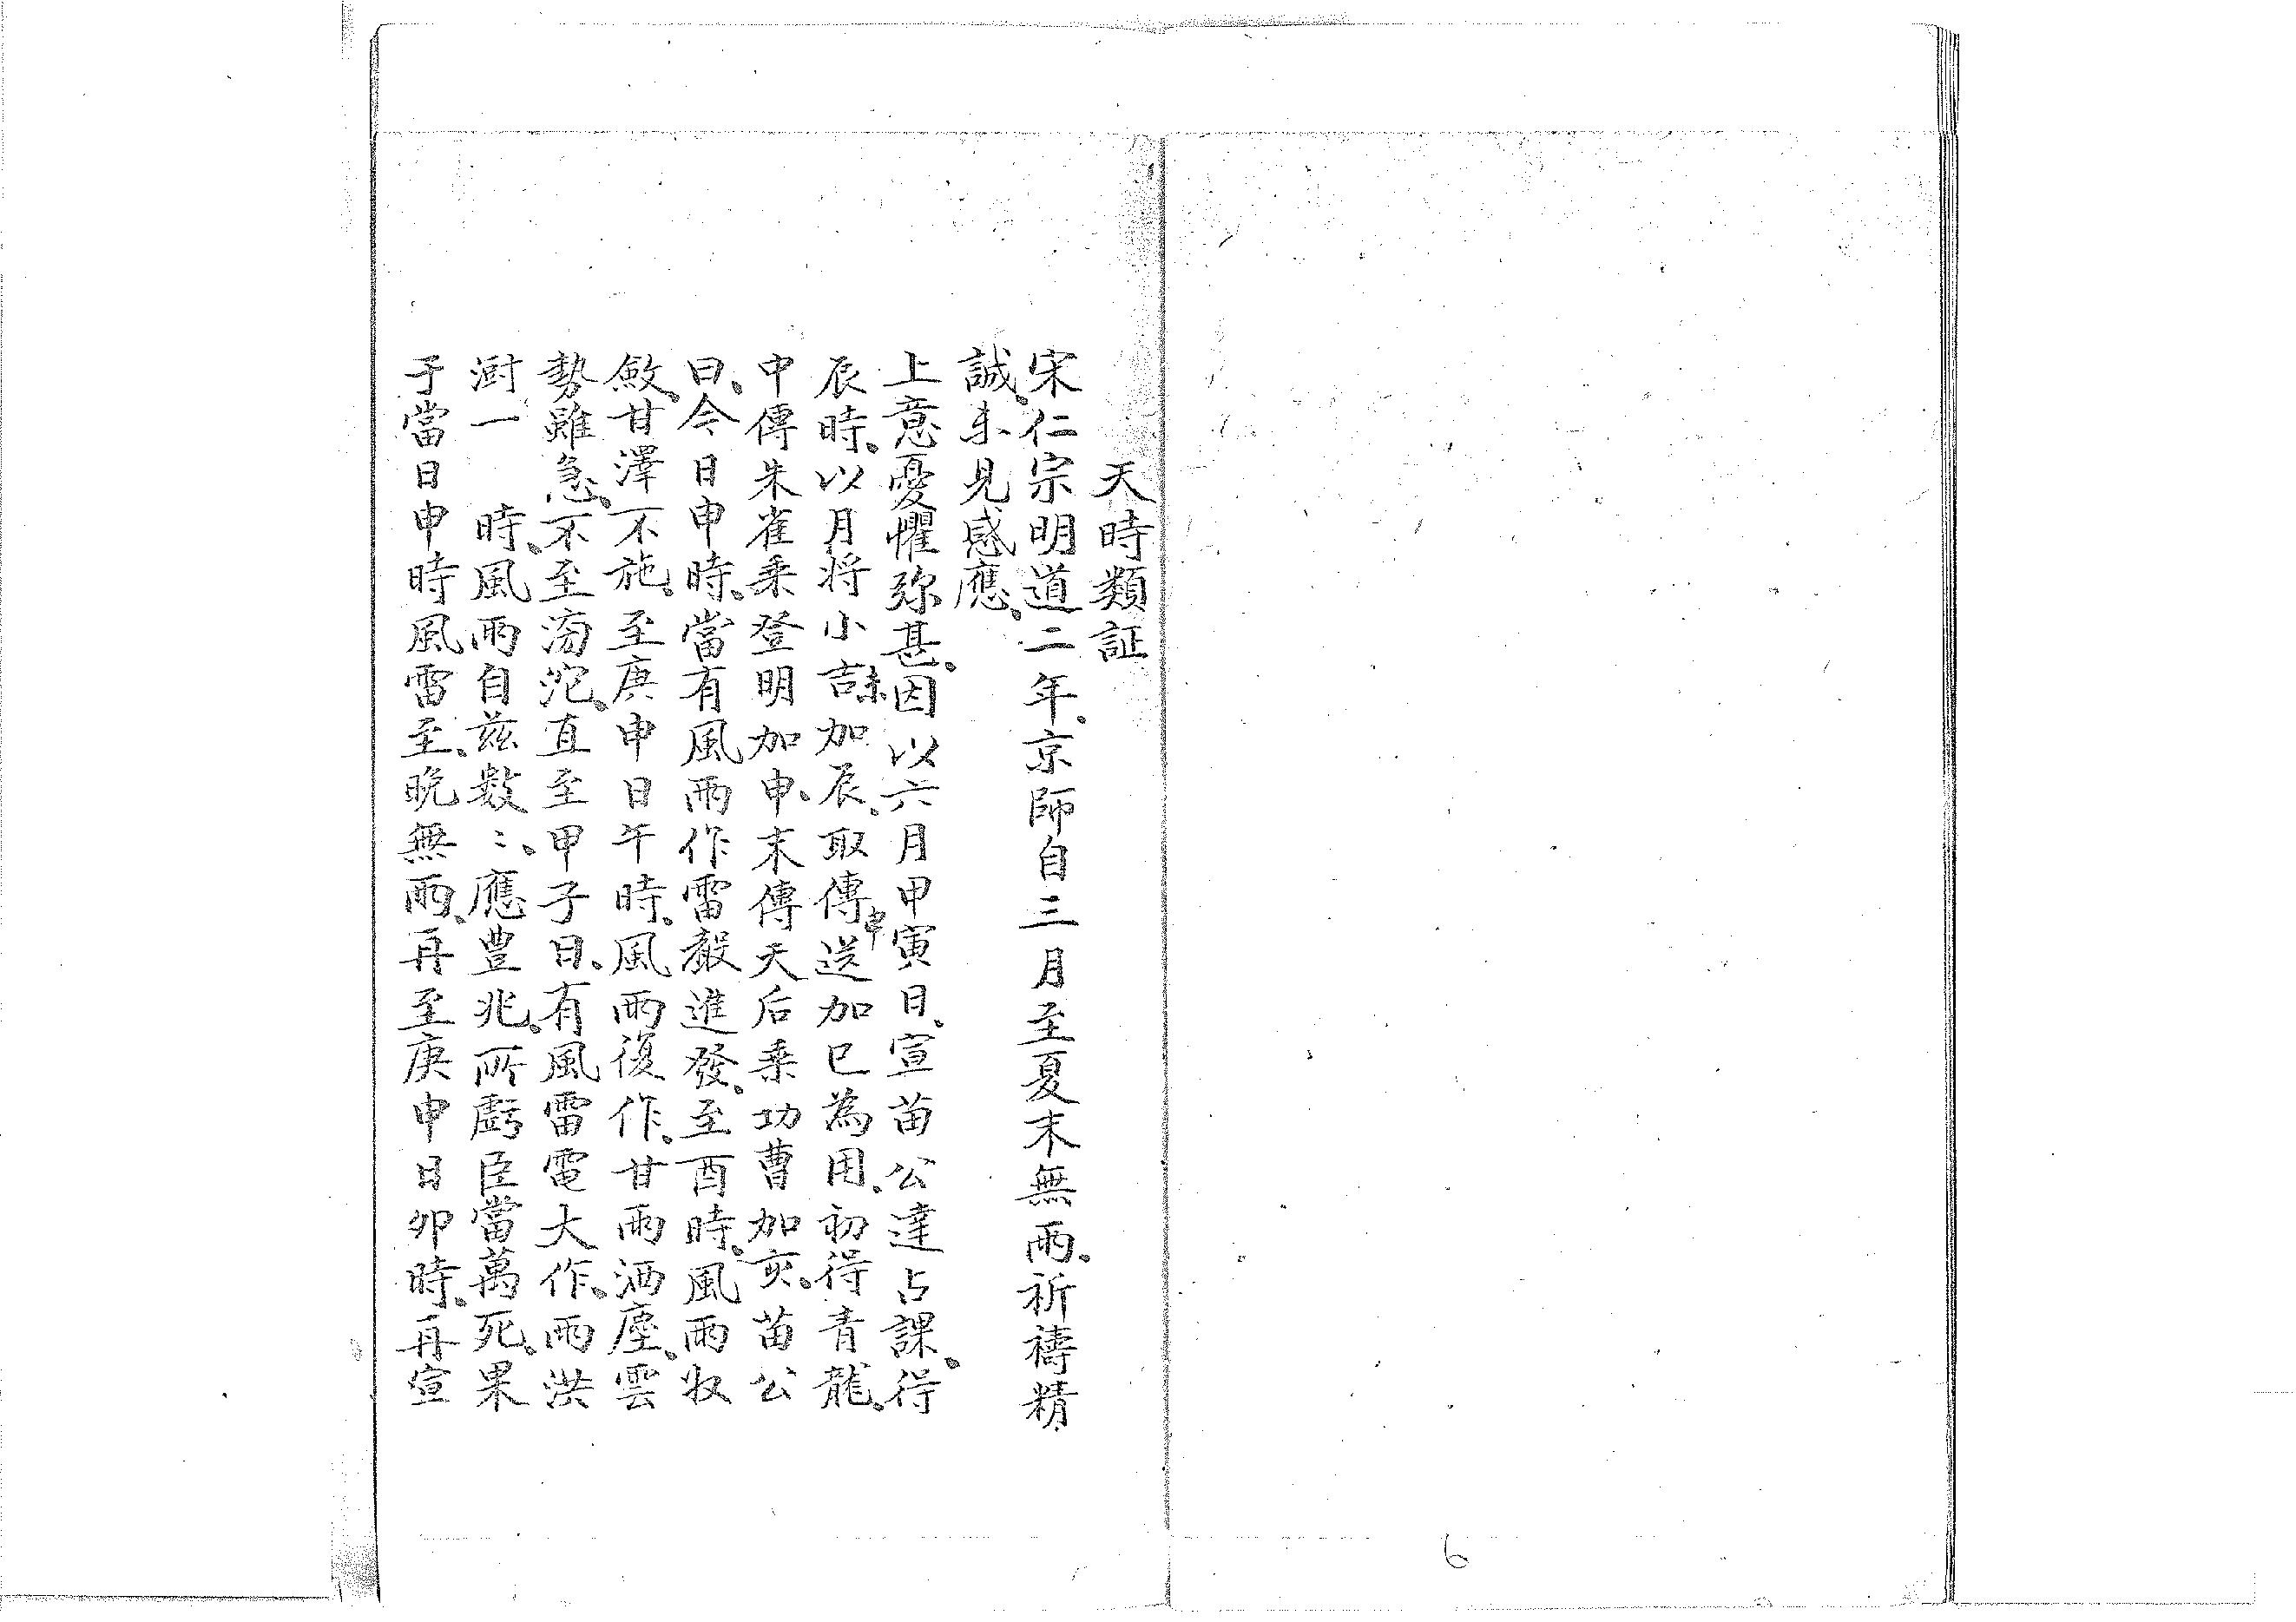 天時類証
宋仁宗明道二年、京師自三月至夏末無雨、祈禱精
誠、未見感應、
上意憂懼弥甚、因 以六月甲寅日、宣苗公達占課、得
辰時、以月将小吉未加辰、取傳申送加巳為用、初得青龍、
中傳朱雀乗登明加申、末傳天后乗功曹加亥、苗公
曰、今日申時、當有風雨作雷齩進發、至酉時、風雨收
斂、甘澤不施、至庚申日午時、風雨復作、甘雨洒塵、雲
勢雖急、不至滂沱、直至甲子日、有風雷電大作、雨洪
澍一 時、風雨自茲数〻、應豊兆、所虧臣當萬死、果
于當日申時風雷至、晚無雨、再至庚申日卯時、再宣
6